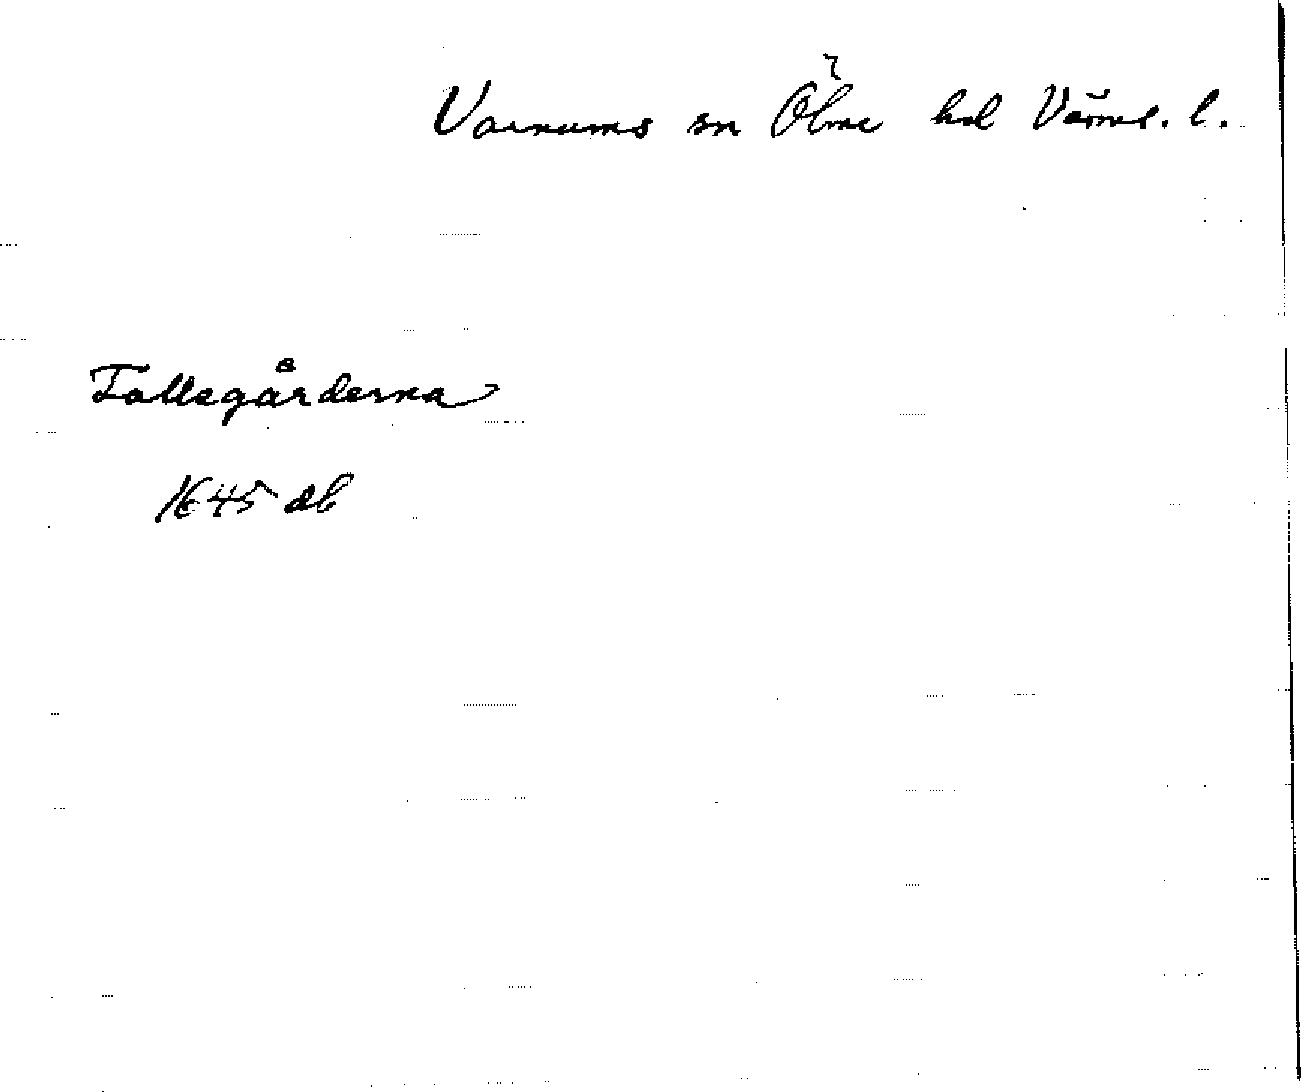 Varnums sn Ölme hd Värml. l.
Tallegårderna
1645 db